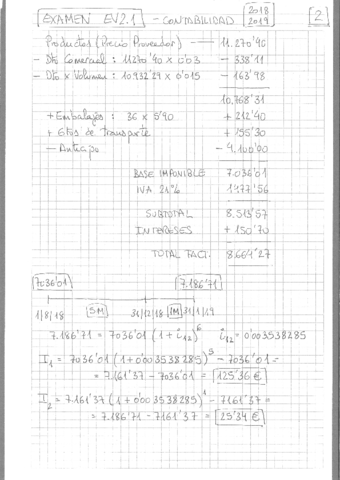 EXAMEN EV2.1 - CONTABILIDAD 2018 2019 2
Productos (Precio Proveedor) — 11.270'40
- Dto Comercial : 11270'40 x 0'03 - 338'11
- Dto x Volumen : 10932'29 x 0'015 - 163'98
10.768'31
+ Embalajes : 36 x 5'90 + 212'40
+ Gtos de transporte + 155'30
- Anticipo - 4.100'00
BASE IMPONIBLE 7.036'01
IVA 21% 1.477'56
SUBTOTAL 8.513'57
INTERESES + 150'70
TOTAL FACT. 8.664'27
7036'01 7.186'71
1/8/18 5M 31/12/18 1M 31/1/19
7.186'71 = 7036'01 (1 + i12)^6 i12 = 0'003538285
I1 = 7036'01 (1 + 0'003538285)^5 - 7036'01 =
= 7.161'37 - 7036'01 = 125'36 €
I2 = 7.161'37 (1 + 0'003538285)^1 - 7161'37 =
= 7.186'71 - 7161'37 = 25'34 €